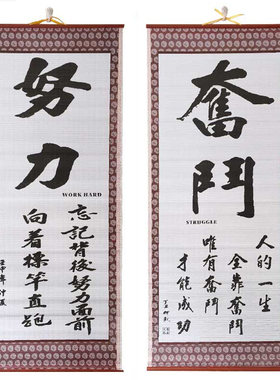 努力
WORK HARD
忘記背後努力面前
向着標竿直跑
奮鬥
STRUGGLE
人的一生
全靠奮鬥
唯有奮鬥
才能成功